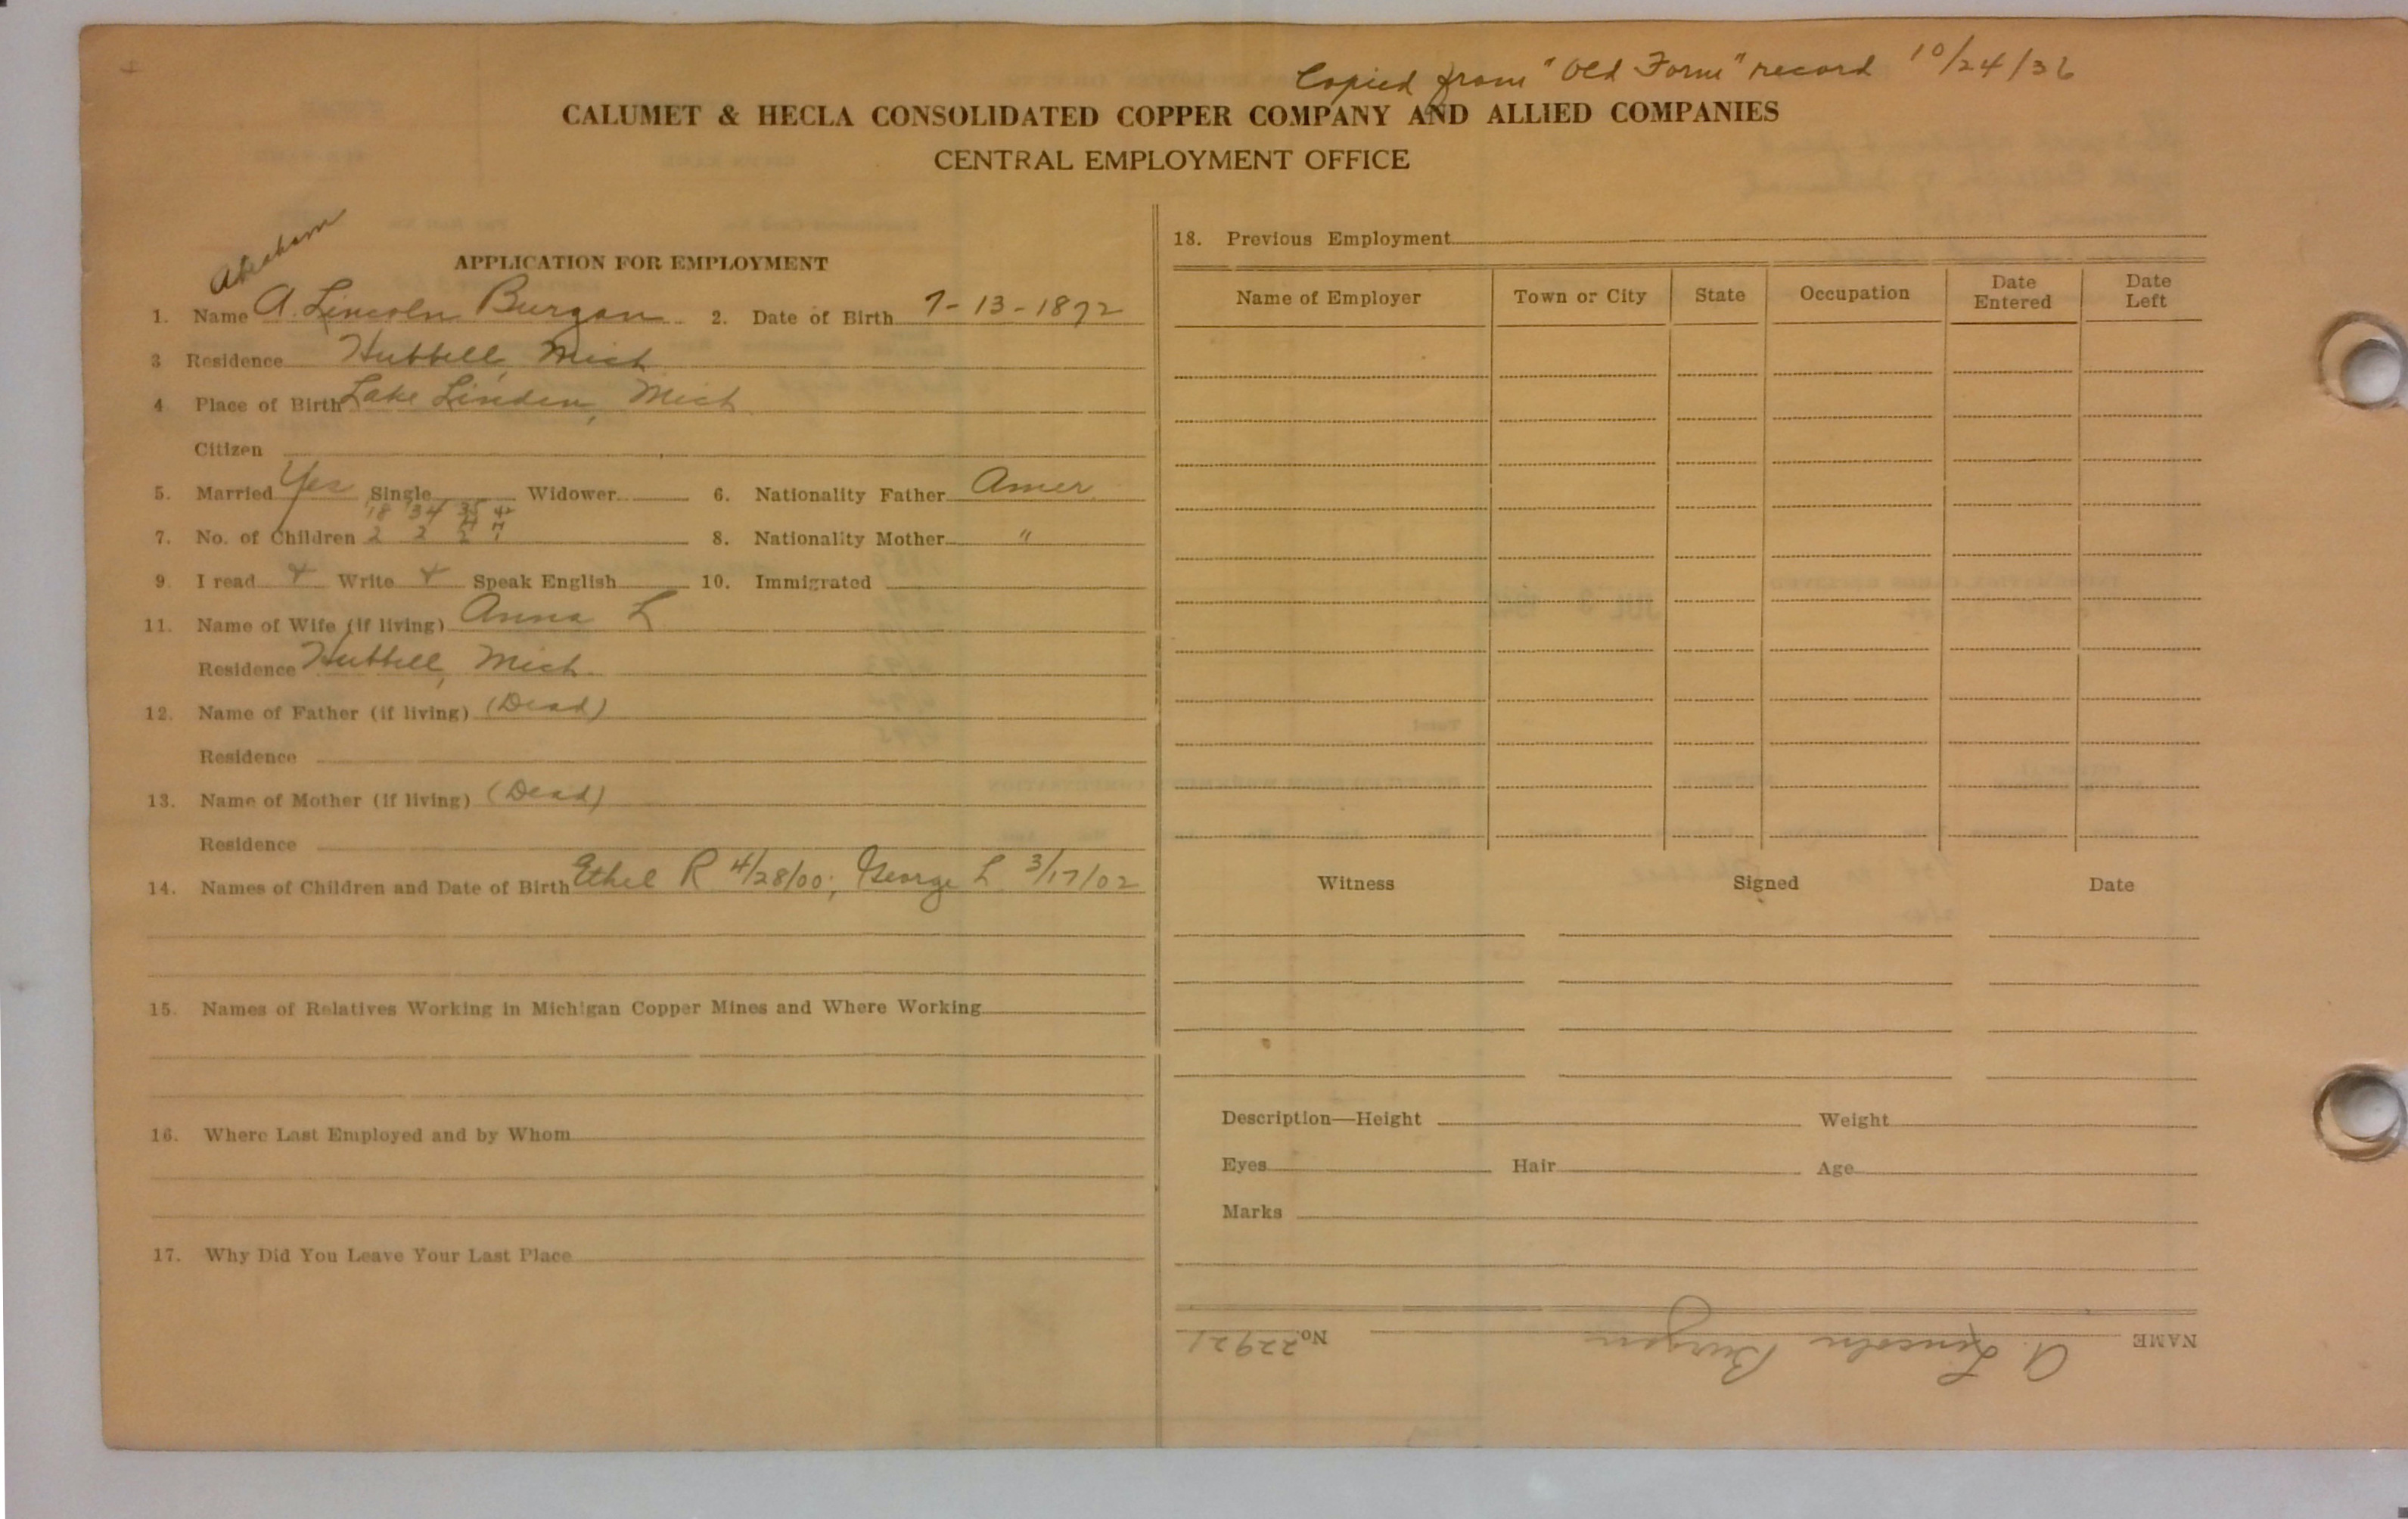 Copied from "Old Form" record 10/24/36
CALUMET & HECLA CONSOLIDATED COPPER COMPANY AND ALLIED COMPANIES
CENTRAL EMPLOYMENT OFFICE
Abraham
APPLICATION FOR EMPLOYMENT
1. Name A. Lincoln Burgan 2. Date of Birth 7-13-1872
3 Residence Hubbell, Mich
4 Place of Birth Lake Linden, Mich
Citizen
5. Married Yes Single Widower 6. Nationality Father Amer.
'18 '34 35 42
7. No. of Children 2 2 2 1 8. Nationality Mother "
9. I read Write Speak English 10. Immigrated
11. Name of Wife (if living) Anna L
Residence Hubbell, Mich.
12. Name of Father (if living) (Dead)
Residence
13. Name of Mother (if living) (Dead)
Residence
14. Names of Children and Date of Birth Ethel R 4/28/00; George L 3/17/02
15. Names of Relatives Working in Michigan Copper Mines and Where Working
16. Where Last Employed and by Whom
17. Why Did You Leave Your Last Place
18. Previous Employment
Name of Employer Town or City State Occupation Date Entered Date Left
Witness Signed Date
Description—Height Weight
Eyes Hair Age
Marks
NAME A. Lincoln Burgan No. 22921